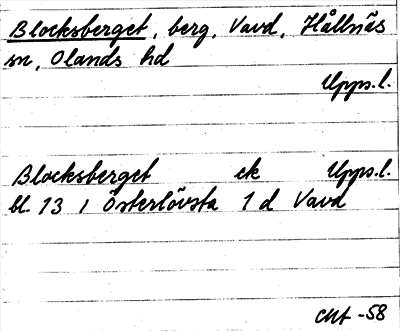 Blocksberget, berg, Vavd, Hållnäs
sn, Olands hd
Upps.l.
Blocksberget ek Upps.l.
bl. 13 1 Österlövsta 1 d Vavd
-58